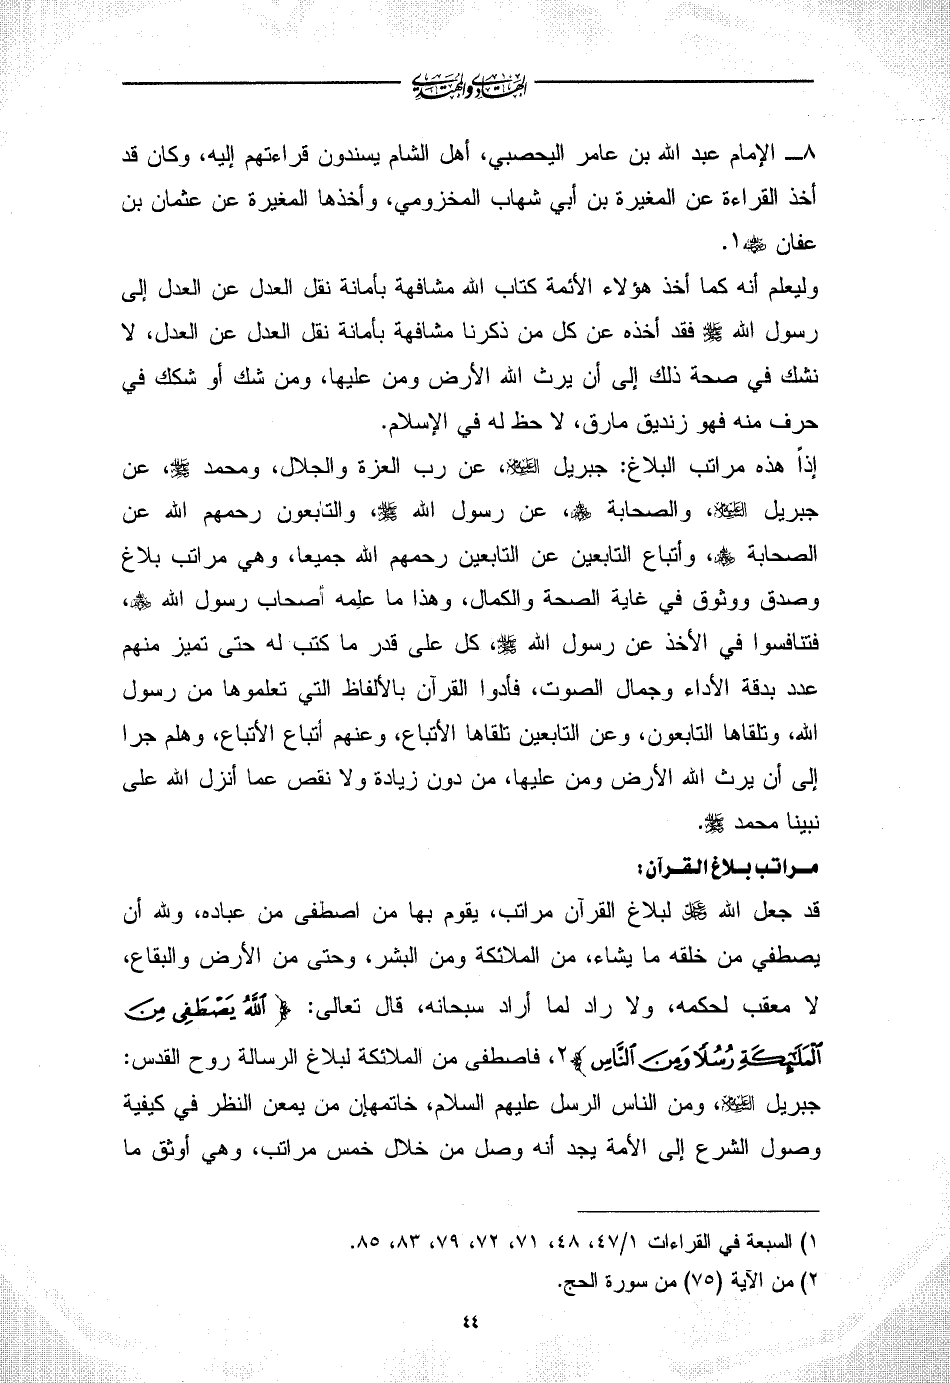 الهادي والمهتدي
٨ـ الإمام عبد الله بن عامر اليحصبي، أهل الشام يسندون قراءتهم إليه، وكان قد
أخذ القراءة عن المغيرة بن أبي شهاب المخزومي، وأخذها المغيرة عن عثمان بن
عفان ﵁١.
وليعلم أنه كما أخذ هؤلاء الأئمة كتاب الله مشافهة بأمانة نقل العدل عن العدل إلى
رسول الله ﷺ فقد أخذه عن كل من ذكرنا مشافهة بأمانة نقل العدل عن العدل، لا
نشك في صحة ذلك إلى أن يرث الله الأرض ومن عليها، ومن شك أو شكك في
حرف منه فهو زنديق مارق، لا حظ له في الإسلام.
إذاً هذه مراتب البلاغ: جبريل ﵇، عن رب العزة والجلال، ومحمد ﷺ، عن
جبريل ﵇، والصحابة ﵃، عن رسول الله ﷺ، والتابعون رحمهم الله عن
الصحابة ﵃، وأتباع التابعين عن التابعين رحمهم الله جميعا، وهي مراتب بلاغ
وصدق ووثوق في غاية الصحة والكمال، وهذا ما علمه أصحاب رسول الله ﷺ،
فتنافسوا في الأخذ عن رسول الله ﷺ، كل على قدر ما كتب له حتى تميز منهم
عدد بدقة الأداء وجمال الصوت، فأدوا القرآن بالألفاظ التي تعلموها من رسول
الله، وتلقاها التابعون، وعن التابعين تلقاها الأتباع، وعنهم أتباع الأتباع، وهلم جرا
إلى أن يرث الله الأرض ومن عليها، من دون زيادة ولا نقص عما أنزل الله على
نبينا محمد ﷺ.
مراتب بلاغ القرآن:
قد جعل الله ﷻ لبلاغ القرآن مراتب، يقوم بها من اصطفى من عباده، ولله أن
يصطفي من خلقه ما يشاء، من الملائكة ومن البشر، وحتى من الأرض والبقاع،
لا معقب لحكمه، ولا راد لما أراد سبحانه، قال تعالى: ﴿ٱللَّهُ يَصۡطَفِي مِنَ
ٱلۡمَلَٰٓئِكَةِ رُسُلٗا وَمِنَ ٱلنَّاسِ﴾٢، فاصطفى من الملائكة لبلاغ الرسالة روح القدس:
جبريل ﵇، ومن الناس الرسل عليهم السلام، خاتمهإن من يمعن النظر في كيفية
وصول الشرع إلى الأمة يجد أنه وصل من خلال خمس مراتب، وهي أوثق ما
١) السبعة في القراءات ٤٧/١، ٤٨، ٧١، ٧٢، ٧٩، ٨٣، ٨٥.
٢) من الآية (٧٥) من سورة الحج.
٤٤